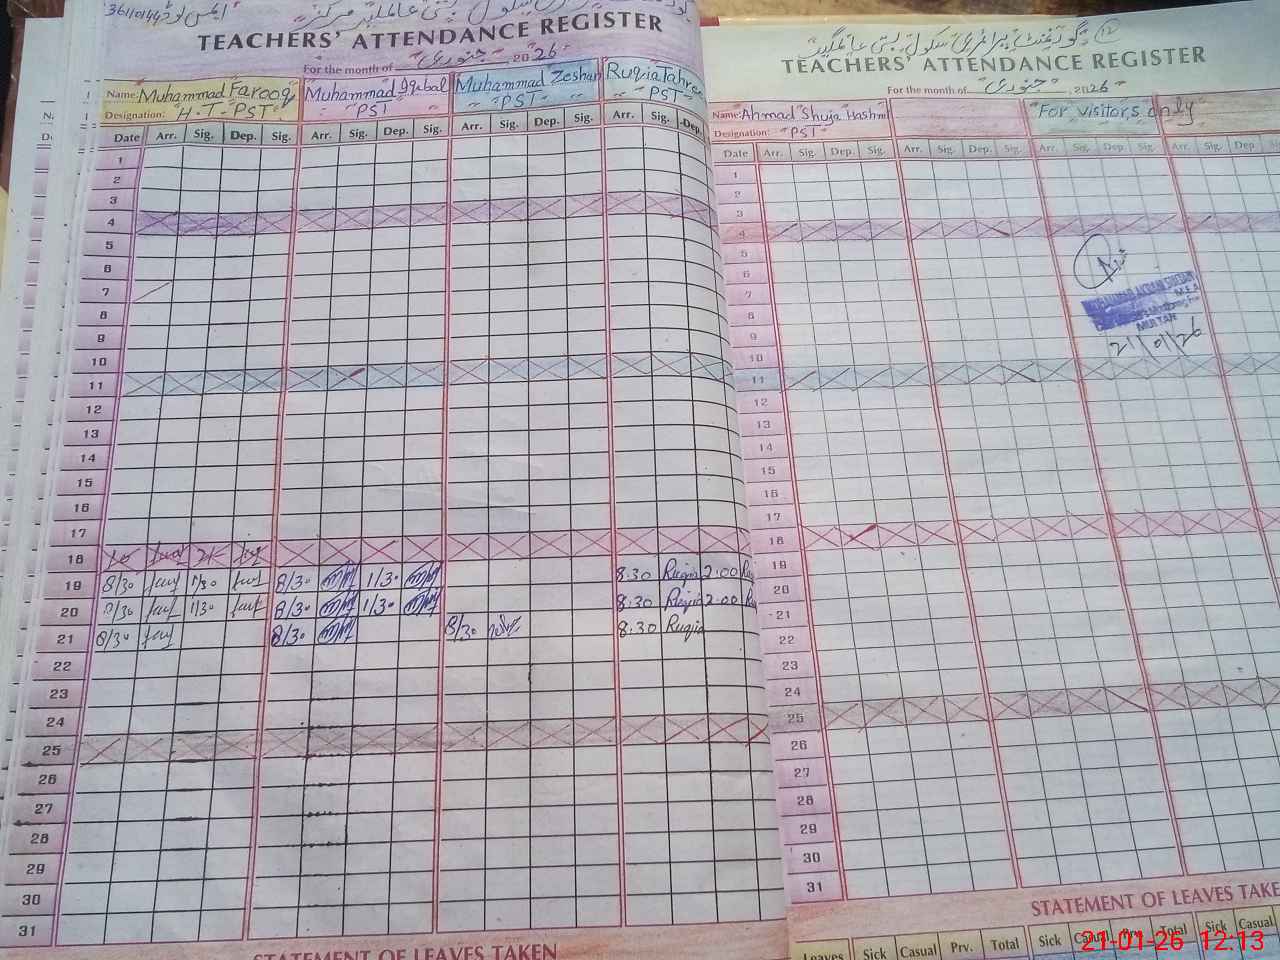 36110144 ایمس کوڈ
سکول بستی عالمگیر مرکز
TEACHERS' ATTENDANCE REGISTER
For the month of جنوری 2026
Name: Muhammad Farooq Muhammad Iqbal Muhammad Zeshan Ruqia Tahre
Designation: H.T-PST "PST" "PST" "PST"
Date Arr. Sig. Dep. Sig. Arr. Sig. Dep. Sig. Arr. Sig. Dep. Sig. Arr. Sig. Dep.
1
2
3
4
5
6
7
8
9
10
11
12
13
14
15
16
17
18
19 8/30 1/30 8/30 1/30 8:30 Ruqia 2:00
20 8/30 1/30 8/30 1/30 8:30 Ruqia 2:00
21 8/30 8/30 8/30 8:30 Ruqia
22
23
24
25
26
27
28
29
30
31
STATEMENT OF LEAVES TAKEN
گورنمنٹ پرائمری سکول بستی عالمگیر (12)
TEACHERS' ATTENDANCE REGISTER
For the month of جنوری 2026
Name: Ahmad Shuja Hashmi For visitors only
Designation: "PST"
Date Arr. Sig. Dep. Sig. Arr. Sig. Dep. Sig. Arr. Sig. Dep. Sig. Arr. Sig. Dep
1
2
3
4
5
6
7
8
9
10
11
12
13
14
15
16
17
18
19
20
21
22
23
24
25
26
27
28
29
30
31
M.E.A
MULTAN
21/01/26
STATEMENT OF LEAVES TAKE
Leaves Sick Casual Prv. Total Sick Casual Prv. Total Sick Casual
21-01-26 12:13